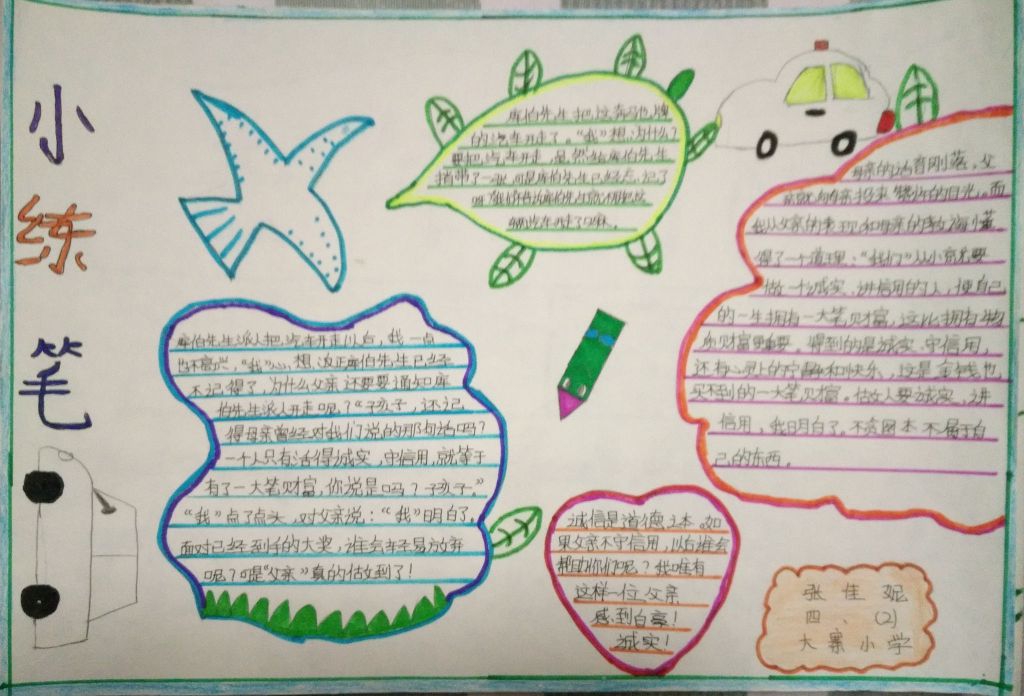 小练笔
库伯先生把这奔驰牌
的汽车开走了。“我”想：为什么？
要把汽车开走，虽然给库伯先生
捎带了一张，可是库伯先生已经忘记了
辆汽车开走了呀。
母亲的话音刚落，父
亲就向母亲投来赞许的目光，而
我从父亲的表现和母亲的教诲懂
得了一个道理：“我们”从小就要
做一个诚实、讲信用的人，使自己
的一生拥有一大笔财富，这比拥有物
质财富更重要。得到的是诚实、守信用，
还有心灵上的宁静和快乐，这是金钱也
买不到的一大笔财富。做人要诚实、讲
信用，我明白了。不贪图本不属于自
己的东西。
库伯先生派人把汽车开走以后，我一点
也不高兴，“我”心想：这正库伯先生已经
不记得了，为什么父亲还要要通知库
伯先生派人开走呢？“孩子，还记
得母亲曾经对我们说的那句话吗？
一个人只有活得诚实，守信用，就等于
有了一大笔财富，你说是吗？孩子。”
“我”点了点头，对父亲说：“我”明白了。
面对已经到手的大奖，谁会轻易放弃
呢？可是“父亲”真的做到了！
诚信是道德之本。如
果父亲不守信用，以后谁会
帮助你们呢？我唯有
这样一位父亲
感到自豪！
诚实！
张佳妮
四、(2)
大寨小学